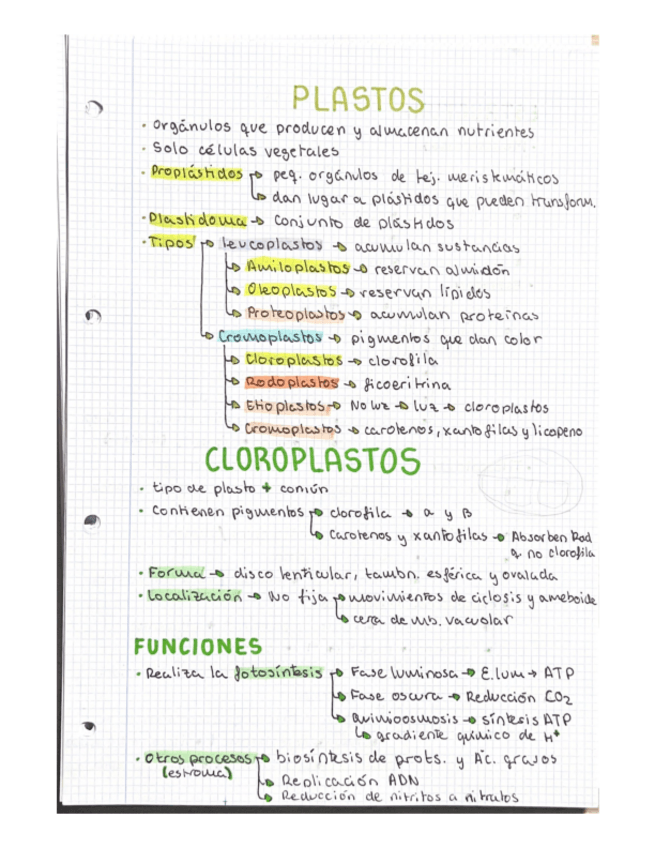 PLASTOS
· Orgánulos que producen y almacenan nutrientes
· Solo células vegetales
· Proplástidos → peq. orgánulos de tej. meristemáticos
→ dan lugar a plástidos que pueden transform.
· Plastidoma → Conjunto de plástidos
· Tipos → leucoplastos → acumulan sustancias
→ Amiloplastos → reservan almidón
→ Oleoplastos → reservan lípidos
→ Proteoplastos → acumulan proteínas
→ Cromoplastos → pigmentos que dan color
→ Cloroplastos → clorofila
→ Rodoplastos → ficoeritrina
→ Etioplastos → No luz → luz → cloroplastos
→ Cromoplastos → carotenos, xantofilas y licopeno
CLOROPLASTOS
· tipo de plasto + común
· Contienen pigmentos → clorofila → α y β
→ Carotenos y xantofilas → Absorben Rad
q. no clorofila
· Forma → disco lenticular, tambn. esférica y ovalada
· Localización → No fija → movimientos de ciclosis y ameboide
→ cera de mb. vacuolar
FUNCIONES
· Realiza la fotosíntesis → Fase luminosa → E.lum → ATP
→ Fase oscura → Reducción CO2
→ Quimiosmosis → síntesis ATP
→ gradiente químico de H+
· Otros procesos → biosíntesis de prots. y Ác. grasos
(estroma)
→ Replicación ADN
→ Reducción de nitritos a nitratos